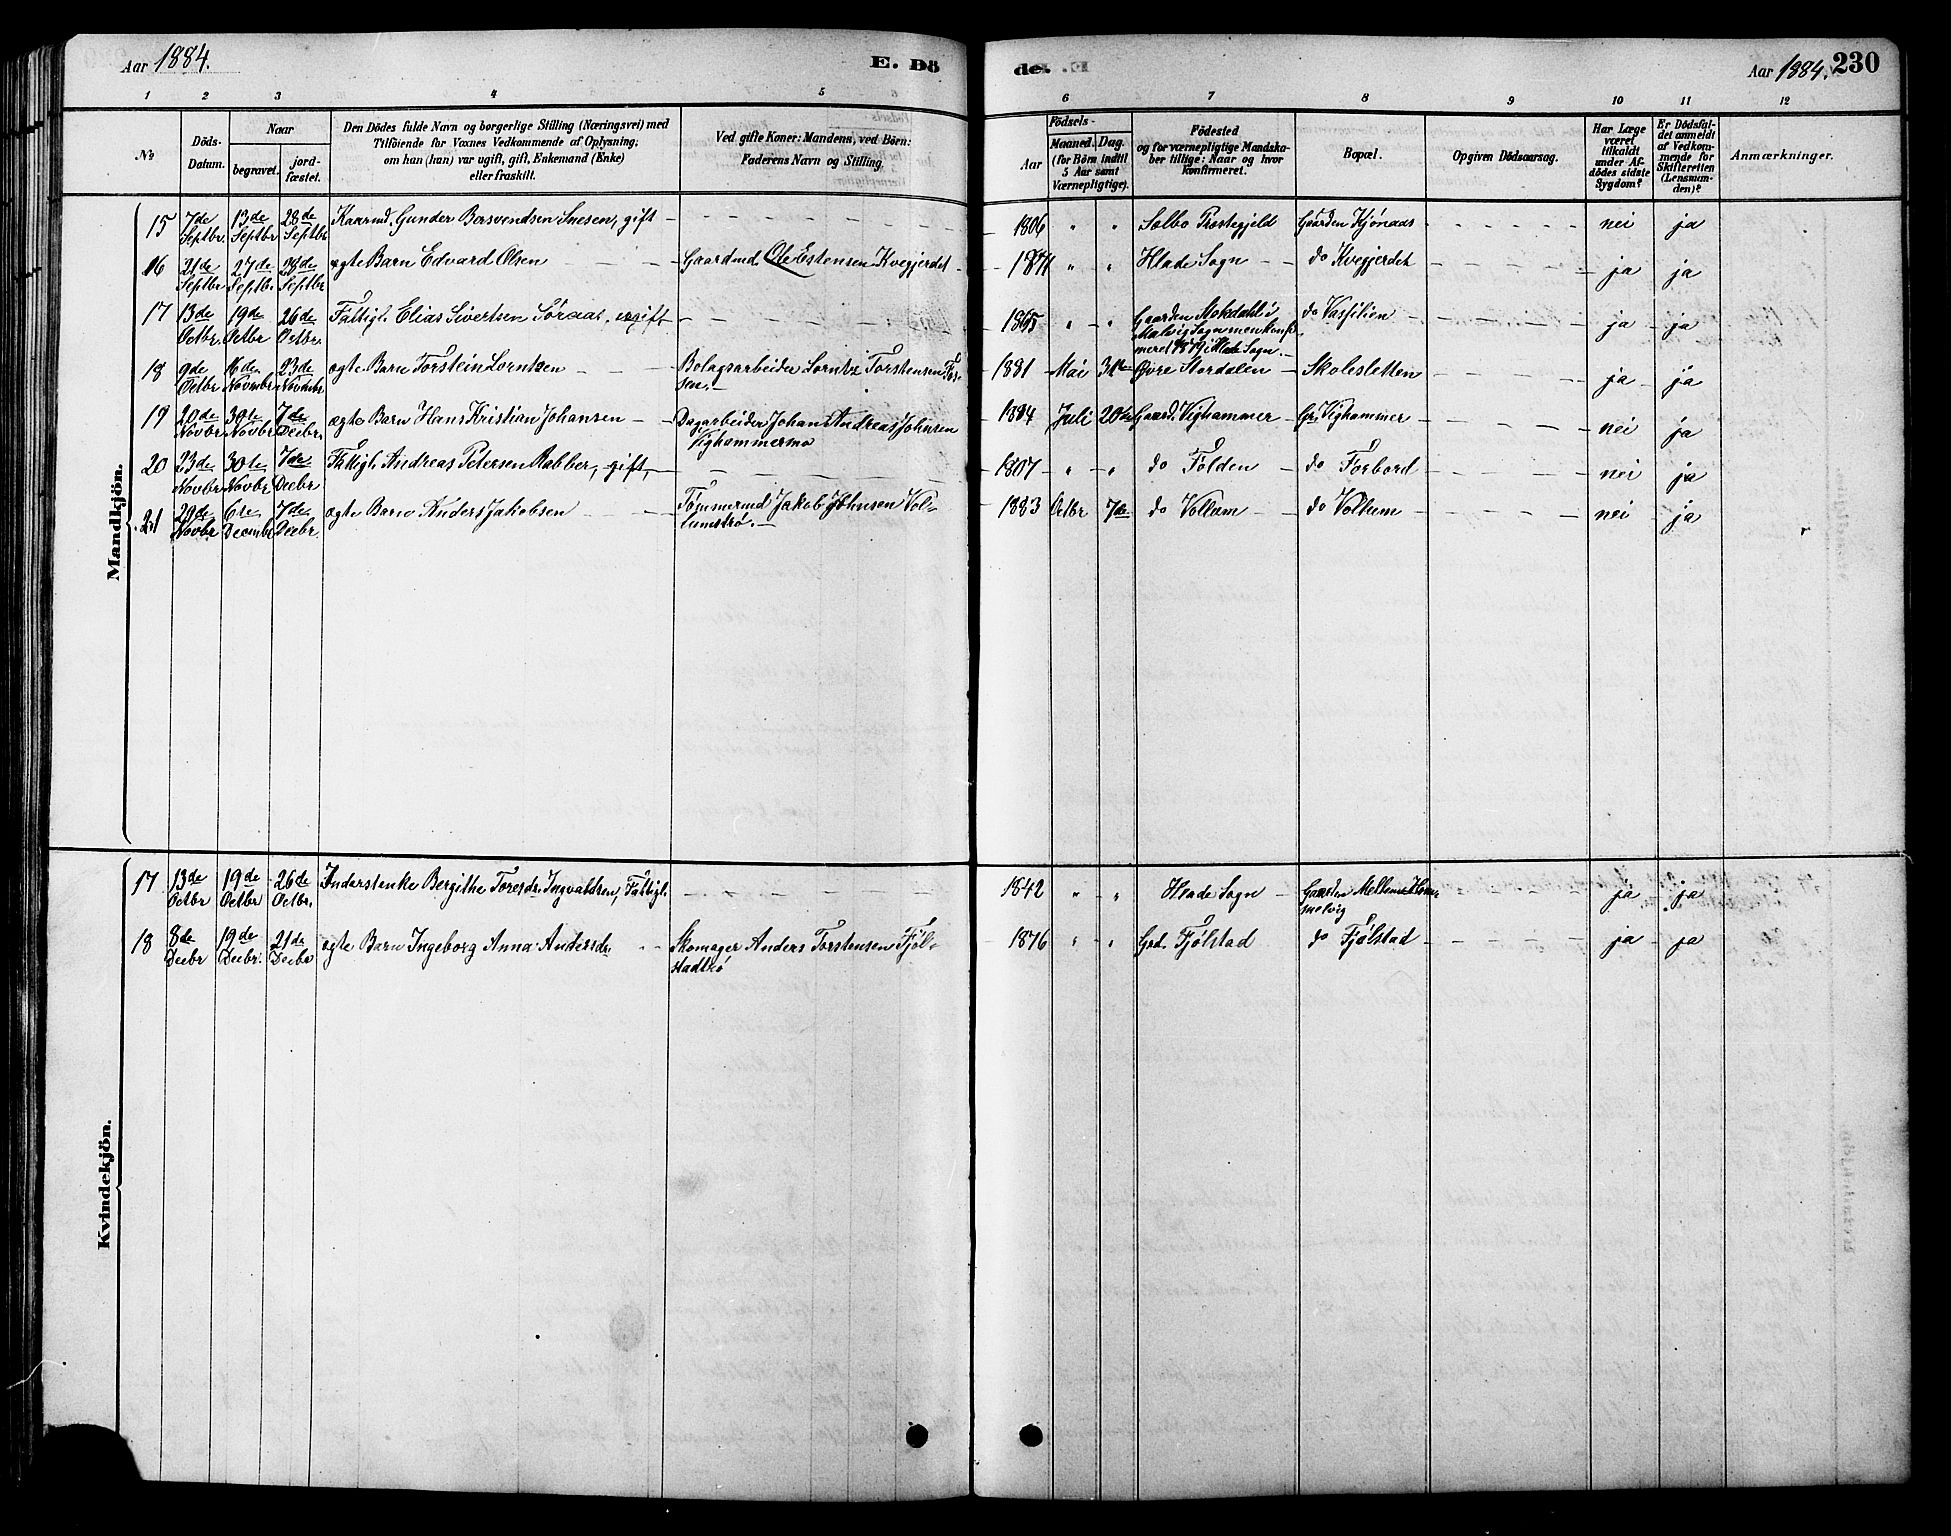 Aar 1884.
E. Dö
de.
Aar 1884.
230
1 2 3 4 5
6 7 8 9 10 11 12
No
Döds-Datum.
Naar
begravet.
jordfæstet.
Den Dödes fulde Navn og borgerlige Stilling (Næringsvei) med
Tilföiende for Voxnes Vedkommende af Oplysning,
om han (hun) var ugift, gift, Enkemand (Enke)
eller fraskilt.
Ved gifte Koner: Mandens, ved Börn:
Faderens Navn og Stilling.
Födsels-
Aar
Maaned. Dag.
(for Börn indtil
5 Aar samt
Værnepligtige).
Födested
og for værnepligtige Mandskaber tillige: Naar og hvor
konfirmeret.
Bopæl.
Opgiven Dödsaarsag.
Har Læge
været
tilkaldt
under Afdödes sidste
Sygdom?
Er Dödsfaldet anmeldt
af Vedkommende for
Skifteretten
(Lensmanden)?
Anmærkninger.
Mandkjön.
15 7de Septbr. 13de Septbr 28de Septbr Kaarmd. Gunder Baarsvendsen Snesen, gift 1806 " " Selbo Præstegjeld Gaarden Kjönaas nei ja
16 21de Septbr 27de Septbr. 28de Septbr ægte Barn Edvard Olsen Gaardmd. Ole Estensen Kvegjerdet " " Hlade Sogn do Kvegjerdet ja ja
17 13de Octbr. 19de Octbr 26de Octbr. Fattigl. Elias Sivertsen Söraas, ugift 1865 " " Gaarden Stokdahl i
Malvig Sogn men konfirmeret 1879 i Hlade Sogn. do Vasfilien ja ja
18 9de Octbr 16de Novmbr 23de Novmbr ægte Barn Torstein Lorntsen Bolagsarbeider Lorntz Torstensen Fossen. 1881 Mai 31te Övre Stordalen Skolesletten ja ja
19 20de Novbr 30te Novbr 7de Decbr. ægte Barn Hans Kristian Johansen Dagarbeider Johan Andreas Johnsen
Vighammermo 1884 Juli 20de Gaard. Vighammer Gr. Vighammer nei ja
20 23de Novbr 30te Novbr 7de Decbr Fattigl. Andreas Petersen Rabber, gift, 1807 " " do Folden do Forbord nei ja
21 29de Novbr 6te Decmbr 7de Decbr. ægte Barn Anders Jakobsen Tömmermd Jakob Johnsen Vollumströ. 1883 Octbr 7de do Vollum do Vollum nei ja
Kvindekjön.
17 13de Octbr 19de Octbr 26de Octbr. Inderstenke Bergithe Toresdr. Ingvaldsen, Fattigl. 1842 " " Hlade Sogn Gaarden Mellem Hommelvig ja ja
18 8de Decbr 19de Decbr. 21de Decbr ægte Barn Ingeborg Anna Andersdr Skomager Anders Torstensen Fjölstadtrö 1876 " " Grd. Fjölstad do Fjölstad ja ja